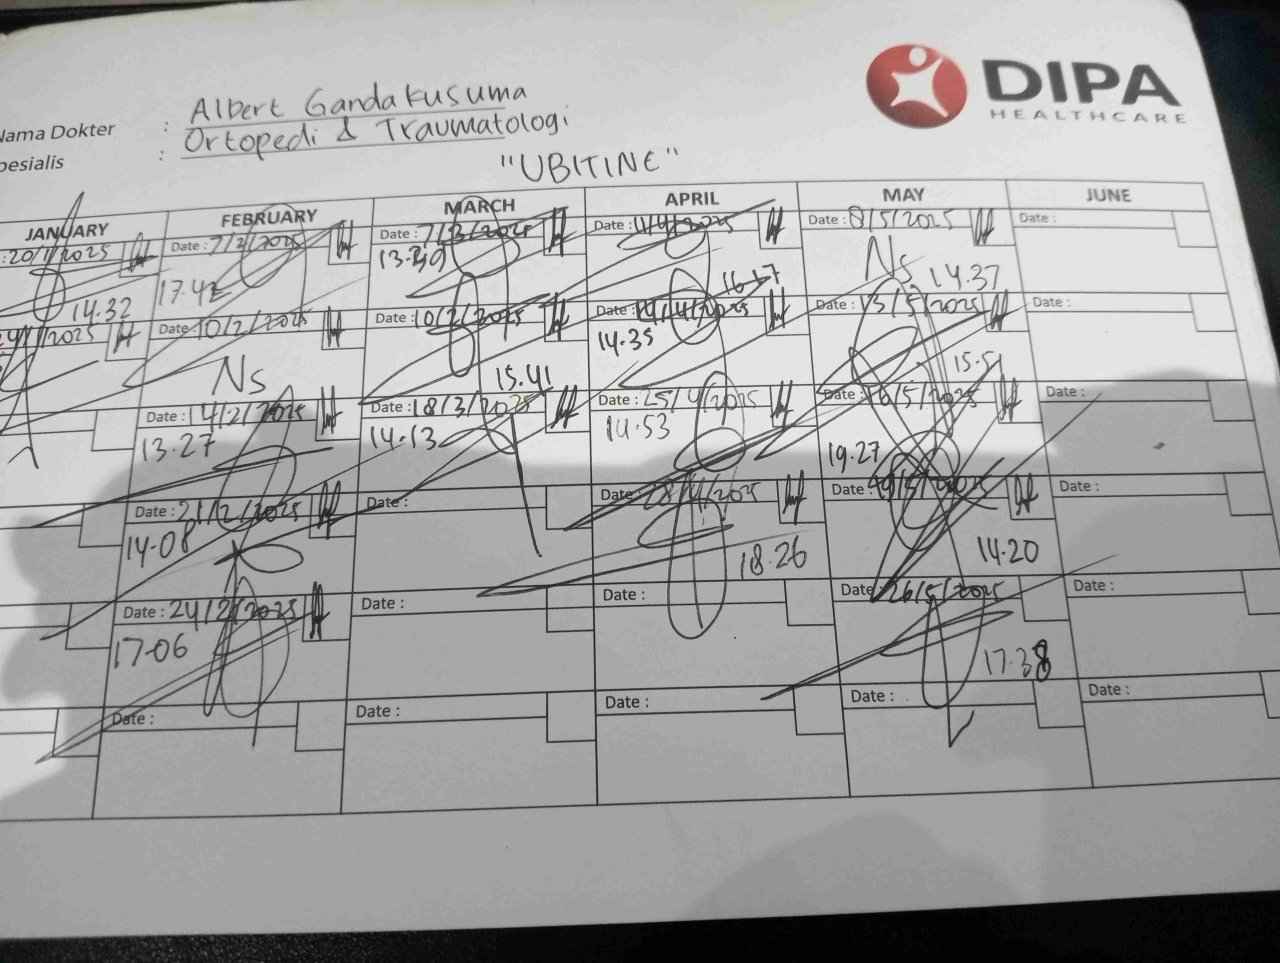 DIPA
HEALTHCARE
Nama Dokter : Albert Gandakusuma
pesialis : Ortopedi & Traumatologi
"UBITINE"
JANUARY FEBRUARY MARCH APRIL MAY JUNE
: 20/1/2025 Date : 7/2/2025 Date : 7/3/2025 Date : 11/4/2025 Date : 8/5/2025 Date :
14.32 17.42 13.39 16.17 Ns 14.37
24/1/2025 Date : 10/2/2025 Date : 10/2/2025 Date : 14/4/2025 Date : 13/5/2025 Date :
Ns 15.41 14.35 15.51
Date : 14/2/2025 Date : 18/3/2025 Date : 25/4/2025 Date : 16/5/2025 Date :
13.27 14.13 14.53 19.27
Date : 21/2/2025 Date : Date : 28/4/2025 Date : 19/5/2025 Date :
14.08 18.26 14.20
Date : 24/2/2025 Date : Date : Date : 26/5/2025 Date :
17.06 17.38
Date : Date : Date : Date : Date :